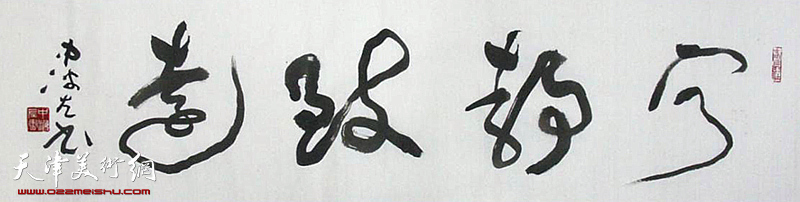 宁静致远
天津美術網
www.022meishu.com